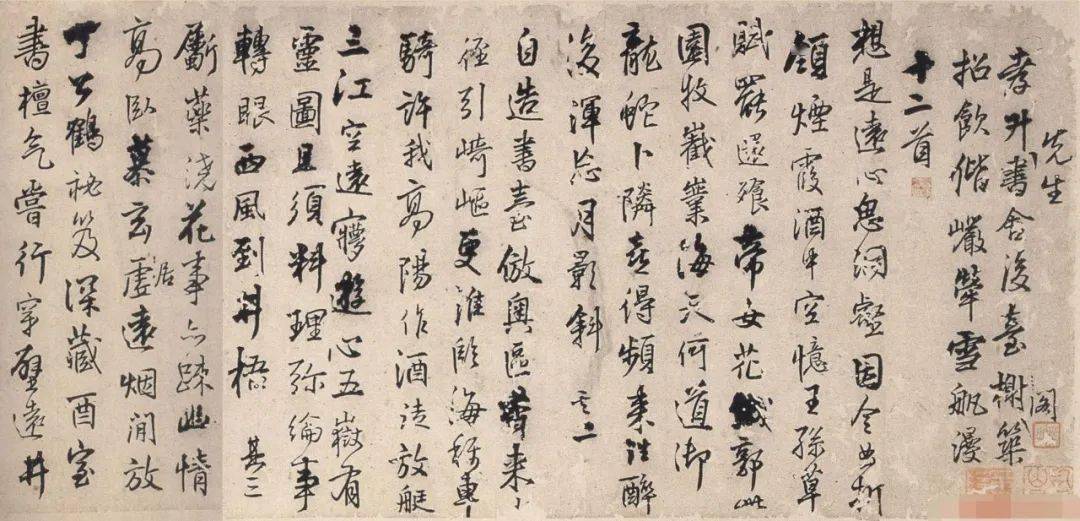 孝升書舍後臺榭築
先生
閣
招飲偕巖犖雪航漫
十二首
想是遠心思洞壑因令此折
領煙霞酒中空憶王孫草
賦罷還飧帝女花城郭此
園收嶻嶪海天何道御
龍蛇卜隣喜得頻來往醉
後渾忘月影斜 其二
自造書臺倣奧區攀來小
徑引崎嶇更淮海稱車
騎許我高陽作酒徒放艇
三江空遠夢遊心五嶽有
靈圖且須料理弥綸事
轉眼西風到井梧 其三
斸藥澆花事亦疎幽情
高臥慕玄虛遠烟澗放
居
丁公鶴祕笈深藏酉室
書檀气嘗行穿壁遠井